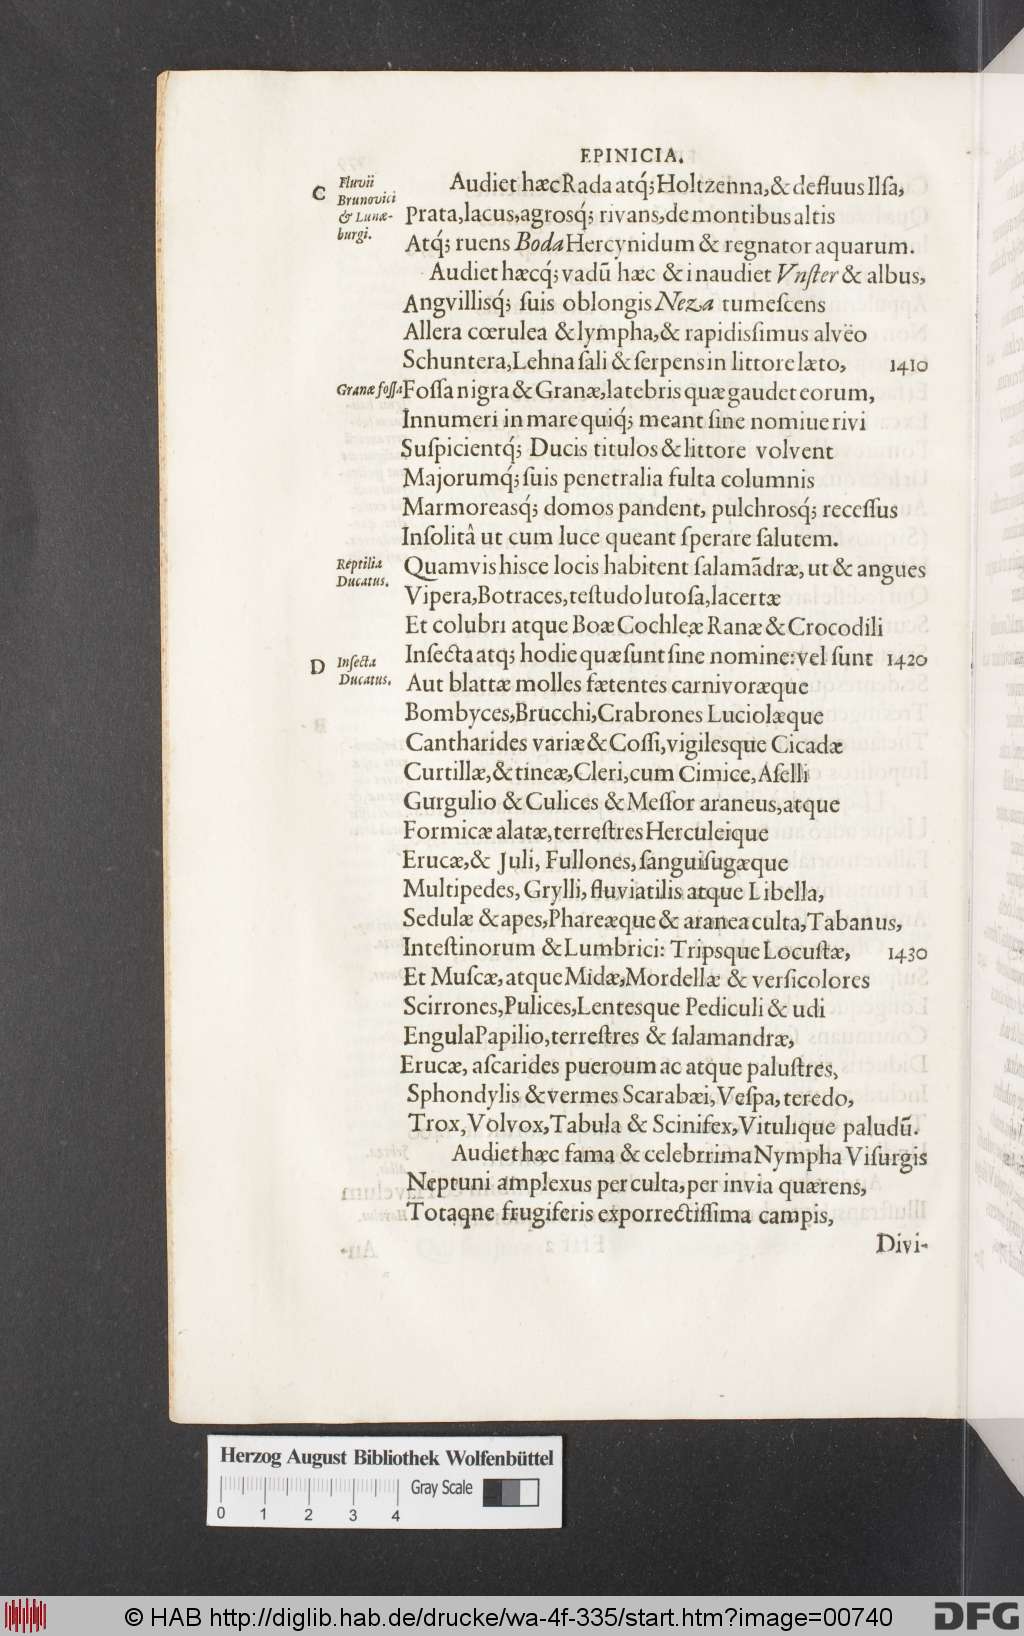 EPINICIA.
C
Fluvii
Brunovici
& Lunæ-
burgi.
Audiet hæc Rada atq́; Holtzenna, & defluus Ilſa,
Prata, lacus, agrosq́; rivans, de montibus altis
Atq́; ruens Boda Hercynidum & regnator aquarum.
Audiet hæcq́; vadū hæc & inaudiet Vnſter & albus,
Angvillisq́; ſuis oblongis Neza tumeſcens
Allera cœrulea & lympha, & rapidisſimus alvëo
Schuntera, Lehna ſali & ſerpens in littore læto, 1410
Granæ foſſa
Foſſa nigra & Granæ, latebris quæ gaudet eorum,
Innumeri in mare quiq́; meant ſine nomiue rivi
Suſpicientq́; Ducis titulos & littore volvent
Majorumq́; ſuis penetralia fulta columnis
Marmoreasq́; domos pandent, pulchrosq́; receſſus
Inſolitâ ut cum luce queant ſperare ſalutem.
Reptilia
Ducatus.
Quamvis hisce locis habitent ſalamādræ, ut & angues
Vipera, Botraces, teſtudo lutoſa, lacertæ
Et colubri atque Boæ Cochleæ Ranæ & Crocodili
D
Inſecta
Ducatus.
Inſecta atq; hodie quæ ſunt ſine nomine: vel ſunt 1420
Aut blattæ molles fætentes carnivoræque
Bombyces, Brucchi, Crabrones Luciolæque
Cantharides variæ & Coſſi, vigilesque Cicadæ
Curtillæ, & tineæ, Cleri, cum Cimice, Aſelli
Gurgulio & Culices & Meſſor araneus, atque
Formicæ alatæ, terreſtres Herculeique
Erucæ, & Juli, Fullones, ſanguiſugæque
Multipedes, Grylli, fluviatilis atque Libella,
Sedulæ & apes, Phareæque & aranea culta, Tabanus,
Inteſtinorum & Lumbrici: Tripsque Locuſtæ, 1430
Et Muſcæ, atque Midæ, Mordellæ & verſicolores
Scirrones, Pulices, Lentesque Pediculi & udi
Engula Papilio, terreſtres & ſalamandræ,
Erucæ, aſcarides pueroum ac atque paluſtres,
Sphondylis & vermes Scarabæi, Veſpa, teredo,
Trox, Volvox, Tabula & Scinifex, Vitulique paludū.
Audiet hæc fama & celebrrima Nympha Viſurgis
Neptuni amplexus per culta, per invia quærens,
Totaqne frugiferis exporrectiſſima campis,
Divi-
Herzog August Bibliothek Wolfenbüttel
Gray Scale
0 1 2 3 4
© HAB http://diglib.hab.de/drucke/wa-4f-335/start.htm?image=00740
DFG